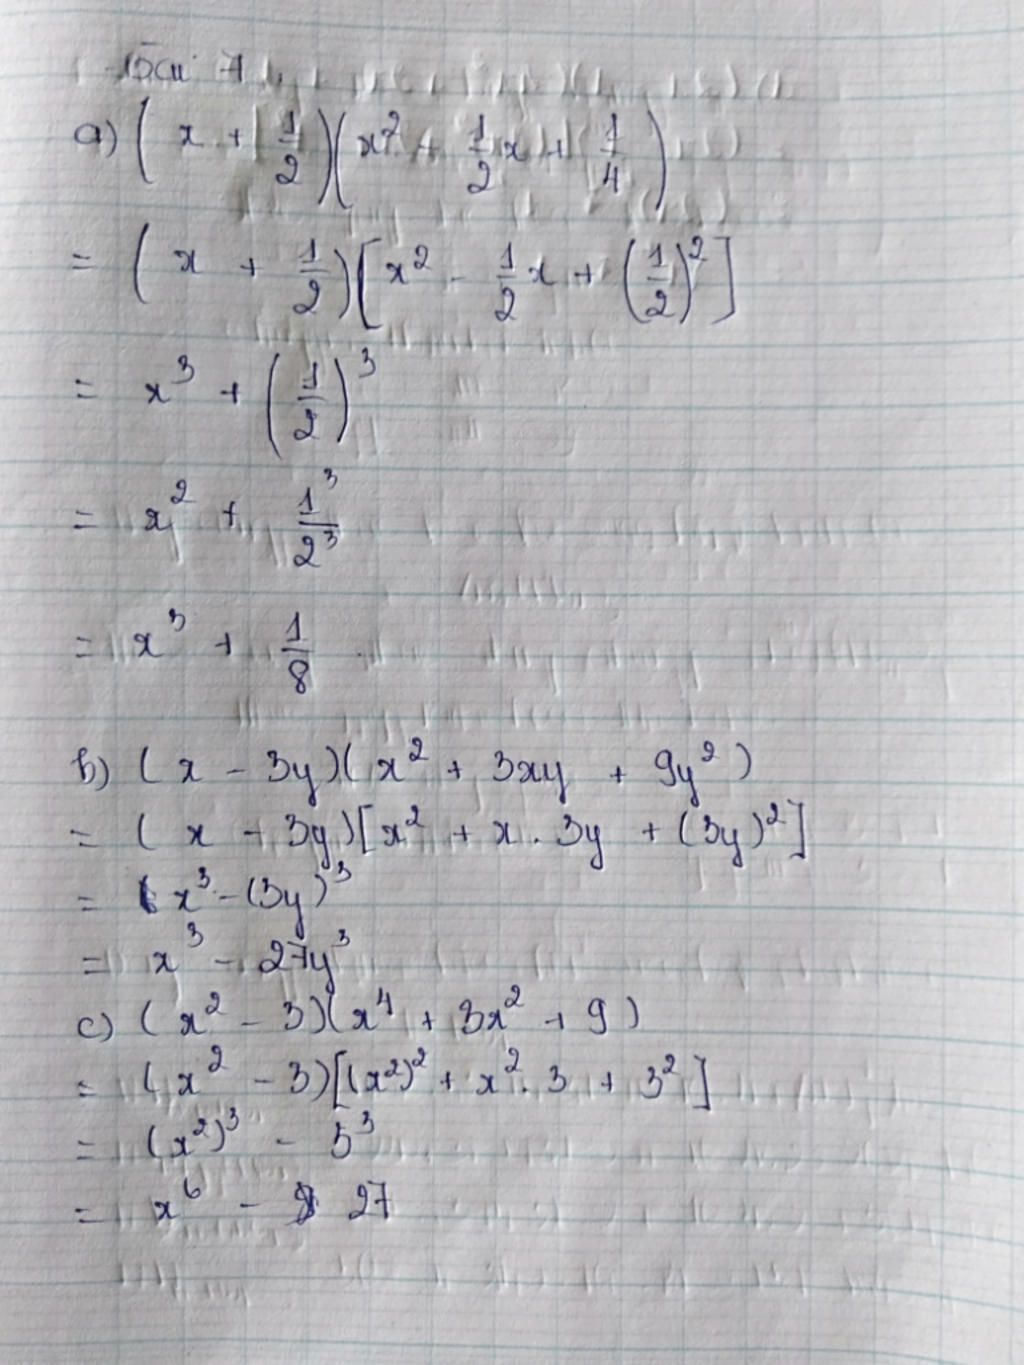 Bài 7
a) (x + 1/2)(x² - 1/2x + 1/4)
= (x + 1/2)[x² - 1/2x + (1/2)²]
= x³ + (1/2)³
= x² + 1³/2³
= x³ + 1/8
b) (x - 3y)(x² + 3xy + 9y²)
= (x - 3y)[x² + x . 3y + (3y)²]
= x³ - (3y)³
= x³ - 27y³
c) (x² - 3)(x⁴ + 3x² + 9)
= (x² - 3)[(x²)² + x² . 3 + 3²]
= (x²)³ - 3³
= x⁶ - 27